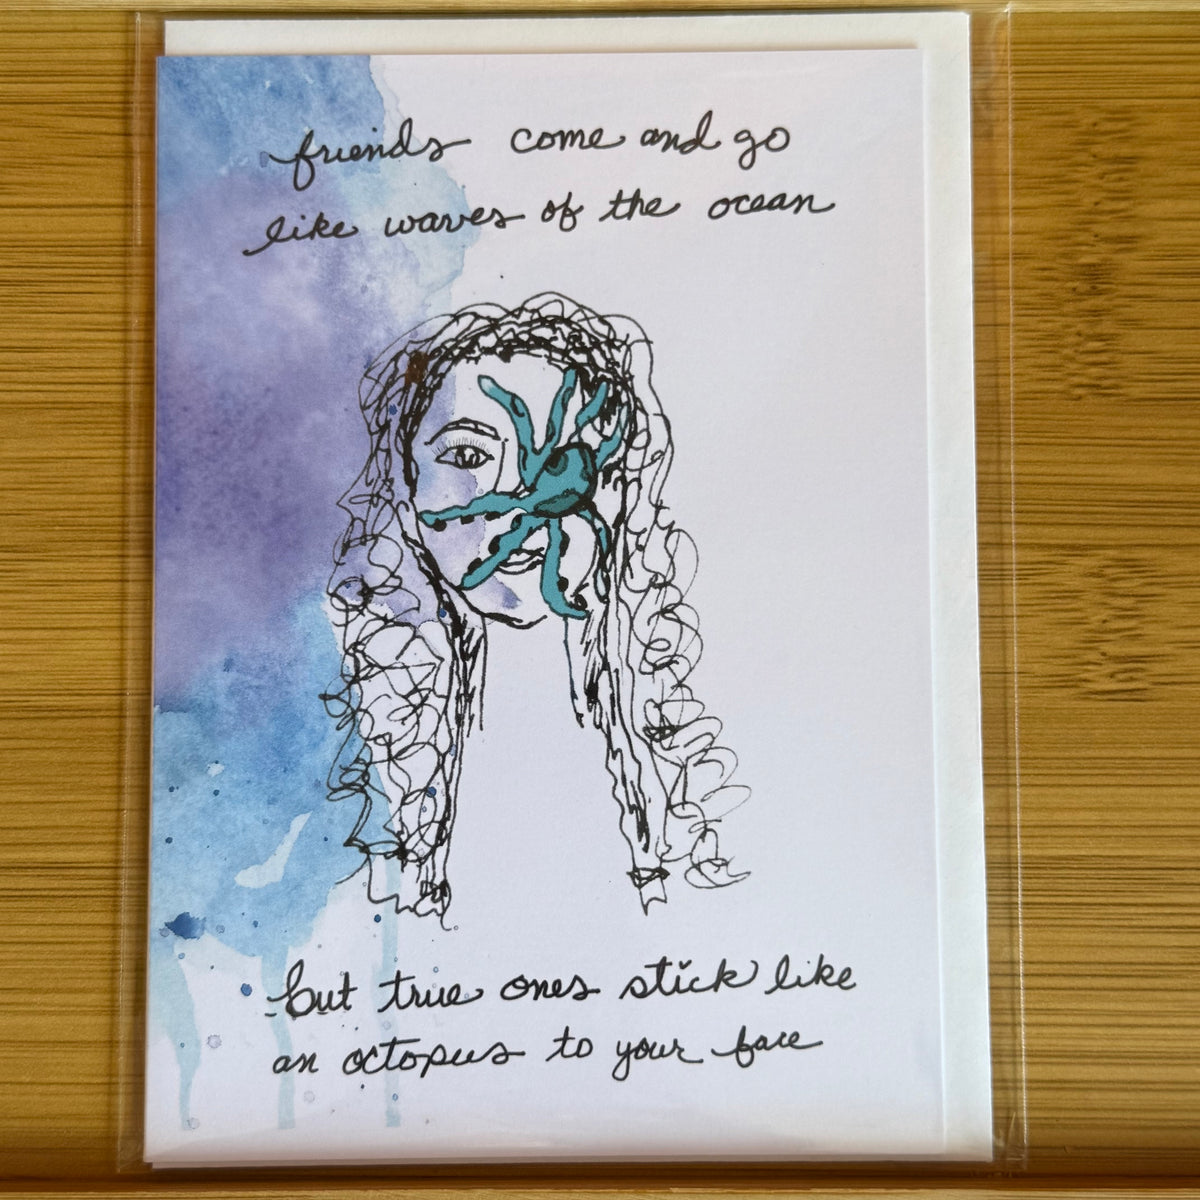 friends come and go
like waves of the ocean
but true ones stick like
an octopus to your face